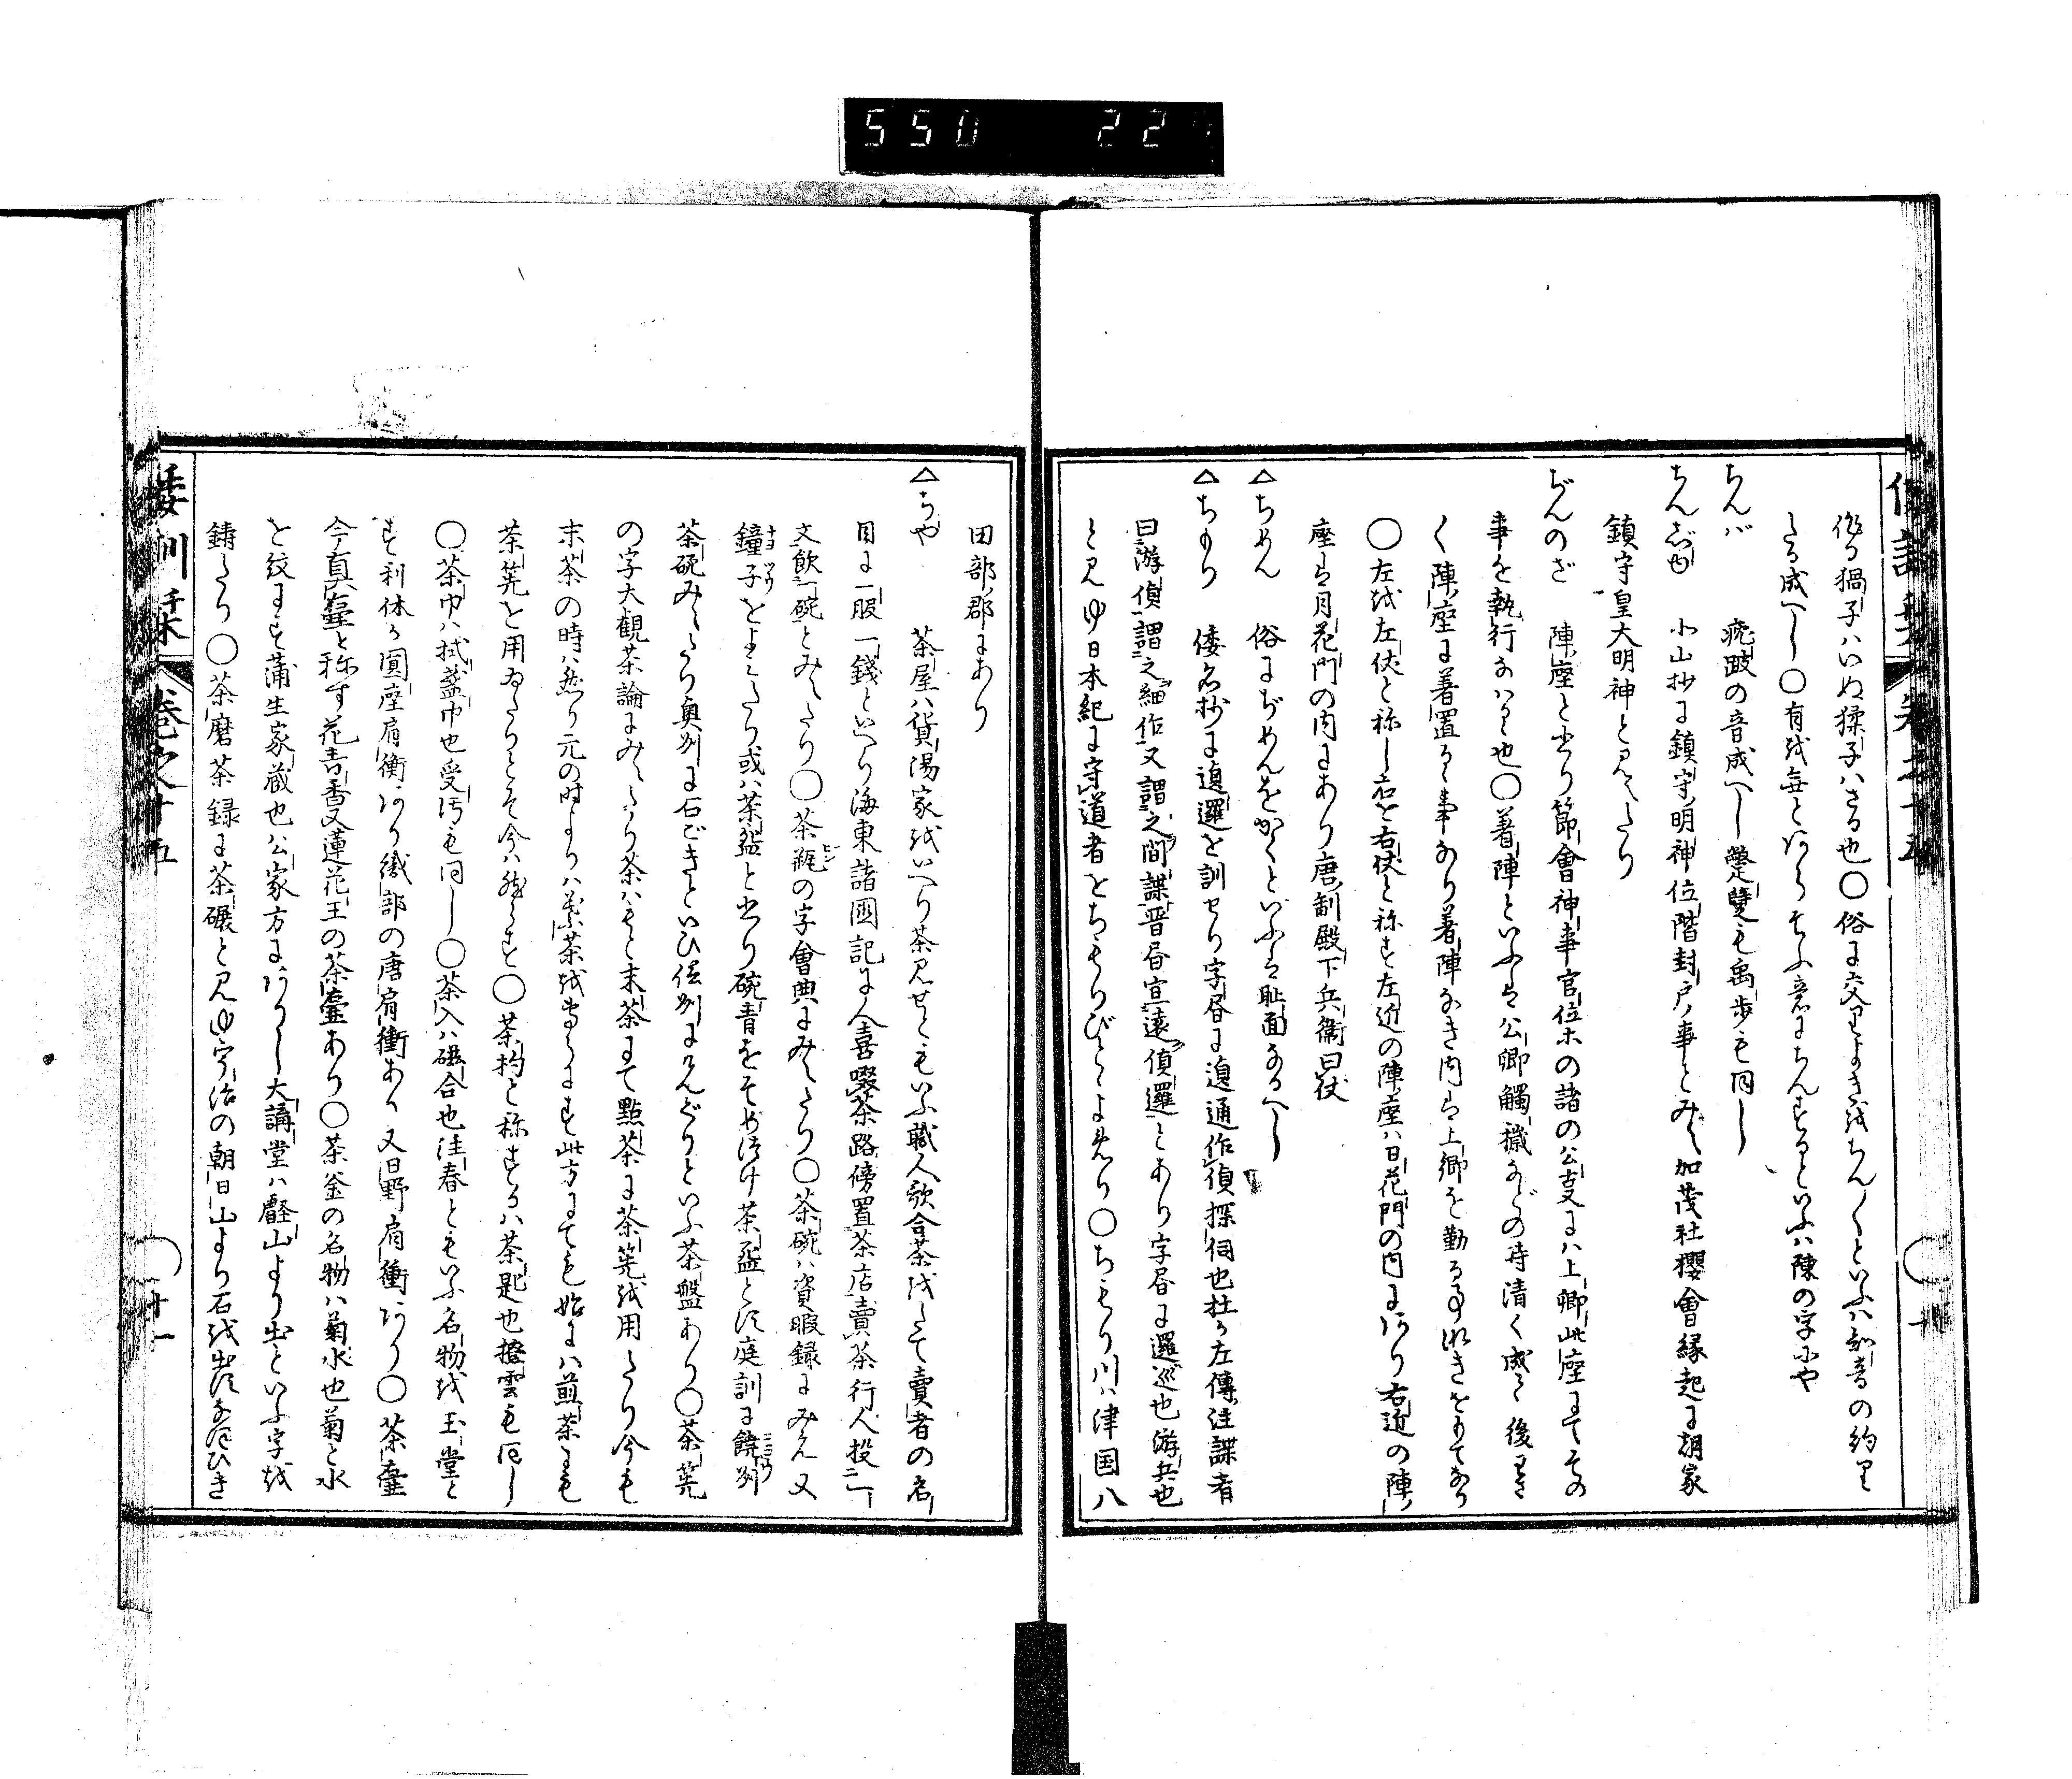 550 22
作る猧子ハいぬ猱子ハさる也〇俗に交りよきをちん〳〵といふハ知音の約り
たる成へし〇有を無とあらそふ意にちんするといふハ陳の字にや
ちんば 㿉跛の音成へし 躄躄も禹歩も同し
ちんじゆ 小山抄に鎮守明神位階封戸事とみゆ加茂社櫻會縁起に胡家
鎮守皇大明神と見えたり
ぢんのざ 陣座と書り節會神事官位ホの諸の公支にハ上卿此座にてその
事を執行なハる也〇着陣といふは公卿觸穢などの時清く成て後よき
く陣座に着置るゝ事あり着陣なき内は上卿を勤る事なきをもてなり
〇左を左仗と称し右を右仗と称す左近の陣座ハ日花門の内にあり右近の陣
座は月花門の内にあり唐制殿下兵衞曰仗
△ちめん 俗にぢめんをかくといふは耻面なるへし
△ちもり 倭名抄に邏を訓せり字昏に通作偵探伺也杜か左傳注諜者
曰游偵謂之細作又謂之間諜晋昏宣遠偵邏とあり字昏に邏巡也游兵也
と見ゆ日本紀に守道者をちもりびとゝよめり〇ちもり川ハ津国八
田部郡にあり
△ちや 茶屋ハ貨湯家をいへり茶見せとも
いふ職人歌合茶をたて賣者の名
目に一服一錢といへり海東諸國記に人喜啜茶路傍置茶店賣茶行人投一
文飲一碗とみえたり〇茶瓶の字會典にみえたり〇茶碗ハ資暇録にみえ又
鐘子をよミたり或ハ茶盌と書り碗青をそめ付け茶盃とす庭訓に饒州
茶碗みえたり奥州に石ごきといひ
茶盤あり〇茶筅
の字大觀茶論にみえたり茶ハもと末茶にて點茶に茶筅を用たり今も
末茶の時ハ然り元の時よりハ葉茶を
此方にても始にハ煎茶にも
茶筅を用ゐたりとそ今ハ然らす〇茶杓と称するハ茶匙也撥雲も同し
〇茶巾ハ拭盞巾也受汚も同し〇茶入ハ磁合也洼春ともいふ名物を玉堂と
す利休か圓座肩衝あり織部の唐肩衝あり又日野肩衝あり〇茶壷
今真壷と称す花青香又蓮花王の茶壷あり〇茶釜の名物ハ菊水也菊と水
を紋にす蒲生家蔵也公家方にありし大講堂ハ叡山より出といふ字を
鋳たり〇茶磨茶録に茶碾と見ゆ宇治の朝日山より石を出す
ひき
倭訓栞 巻之十五 廿一